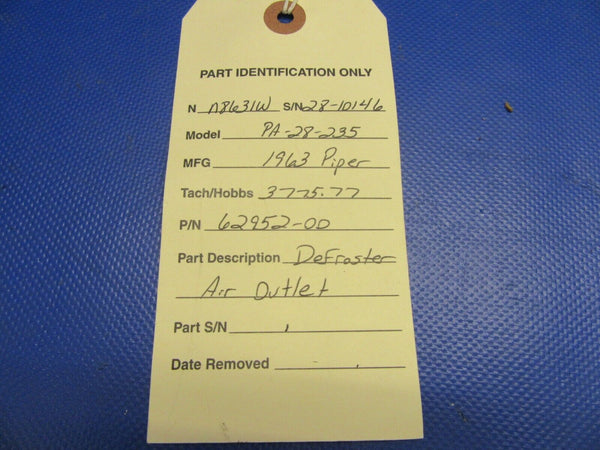 PART IDENTIFICATION ONLY
N N8631W S/N 28-10146
Model PA-28-235
MFG 1963 Piper
Tach/Hobbs 3775.77
P/N 62952-00
Part Description Defroster
Air Outlet
Part S/N
Date Removed